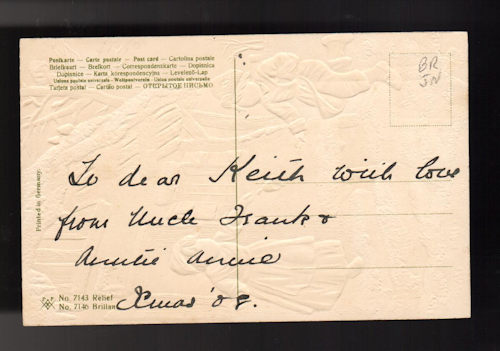 Postkarte — Carte postale — Post card — Cartolina postale
Briefkaart — Brefkort — Correspondenzkarte — Dopisnica
Dopisnice — Karta korespondencyjna — Levelező-Lap
Union postale universelle — Weltpostverein — Union postale universelle
Tarjeta postal — Cartão postal — ОТКРЫТОЕ ПИСЬМО
BR
JN
Printed in Germany.
To dear Keith with love
from Uncle Frank &
Auntie Annie
Xmas '08.
No. 7143 Relief
No. 7146 Brillan